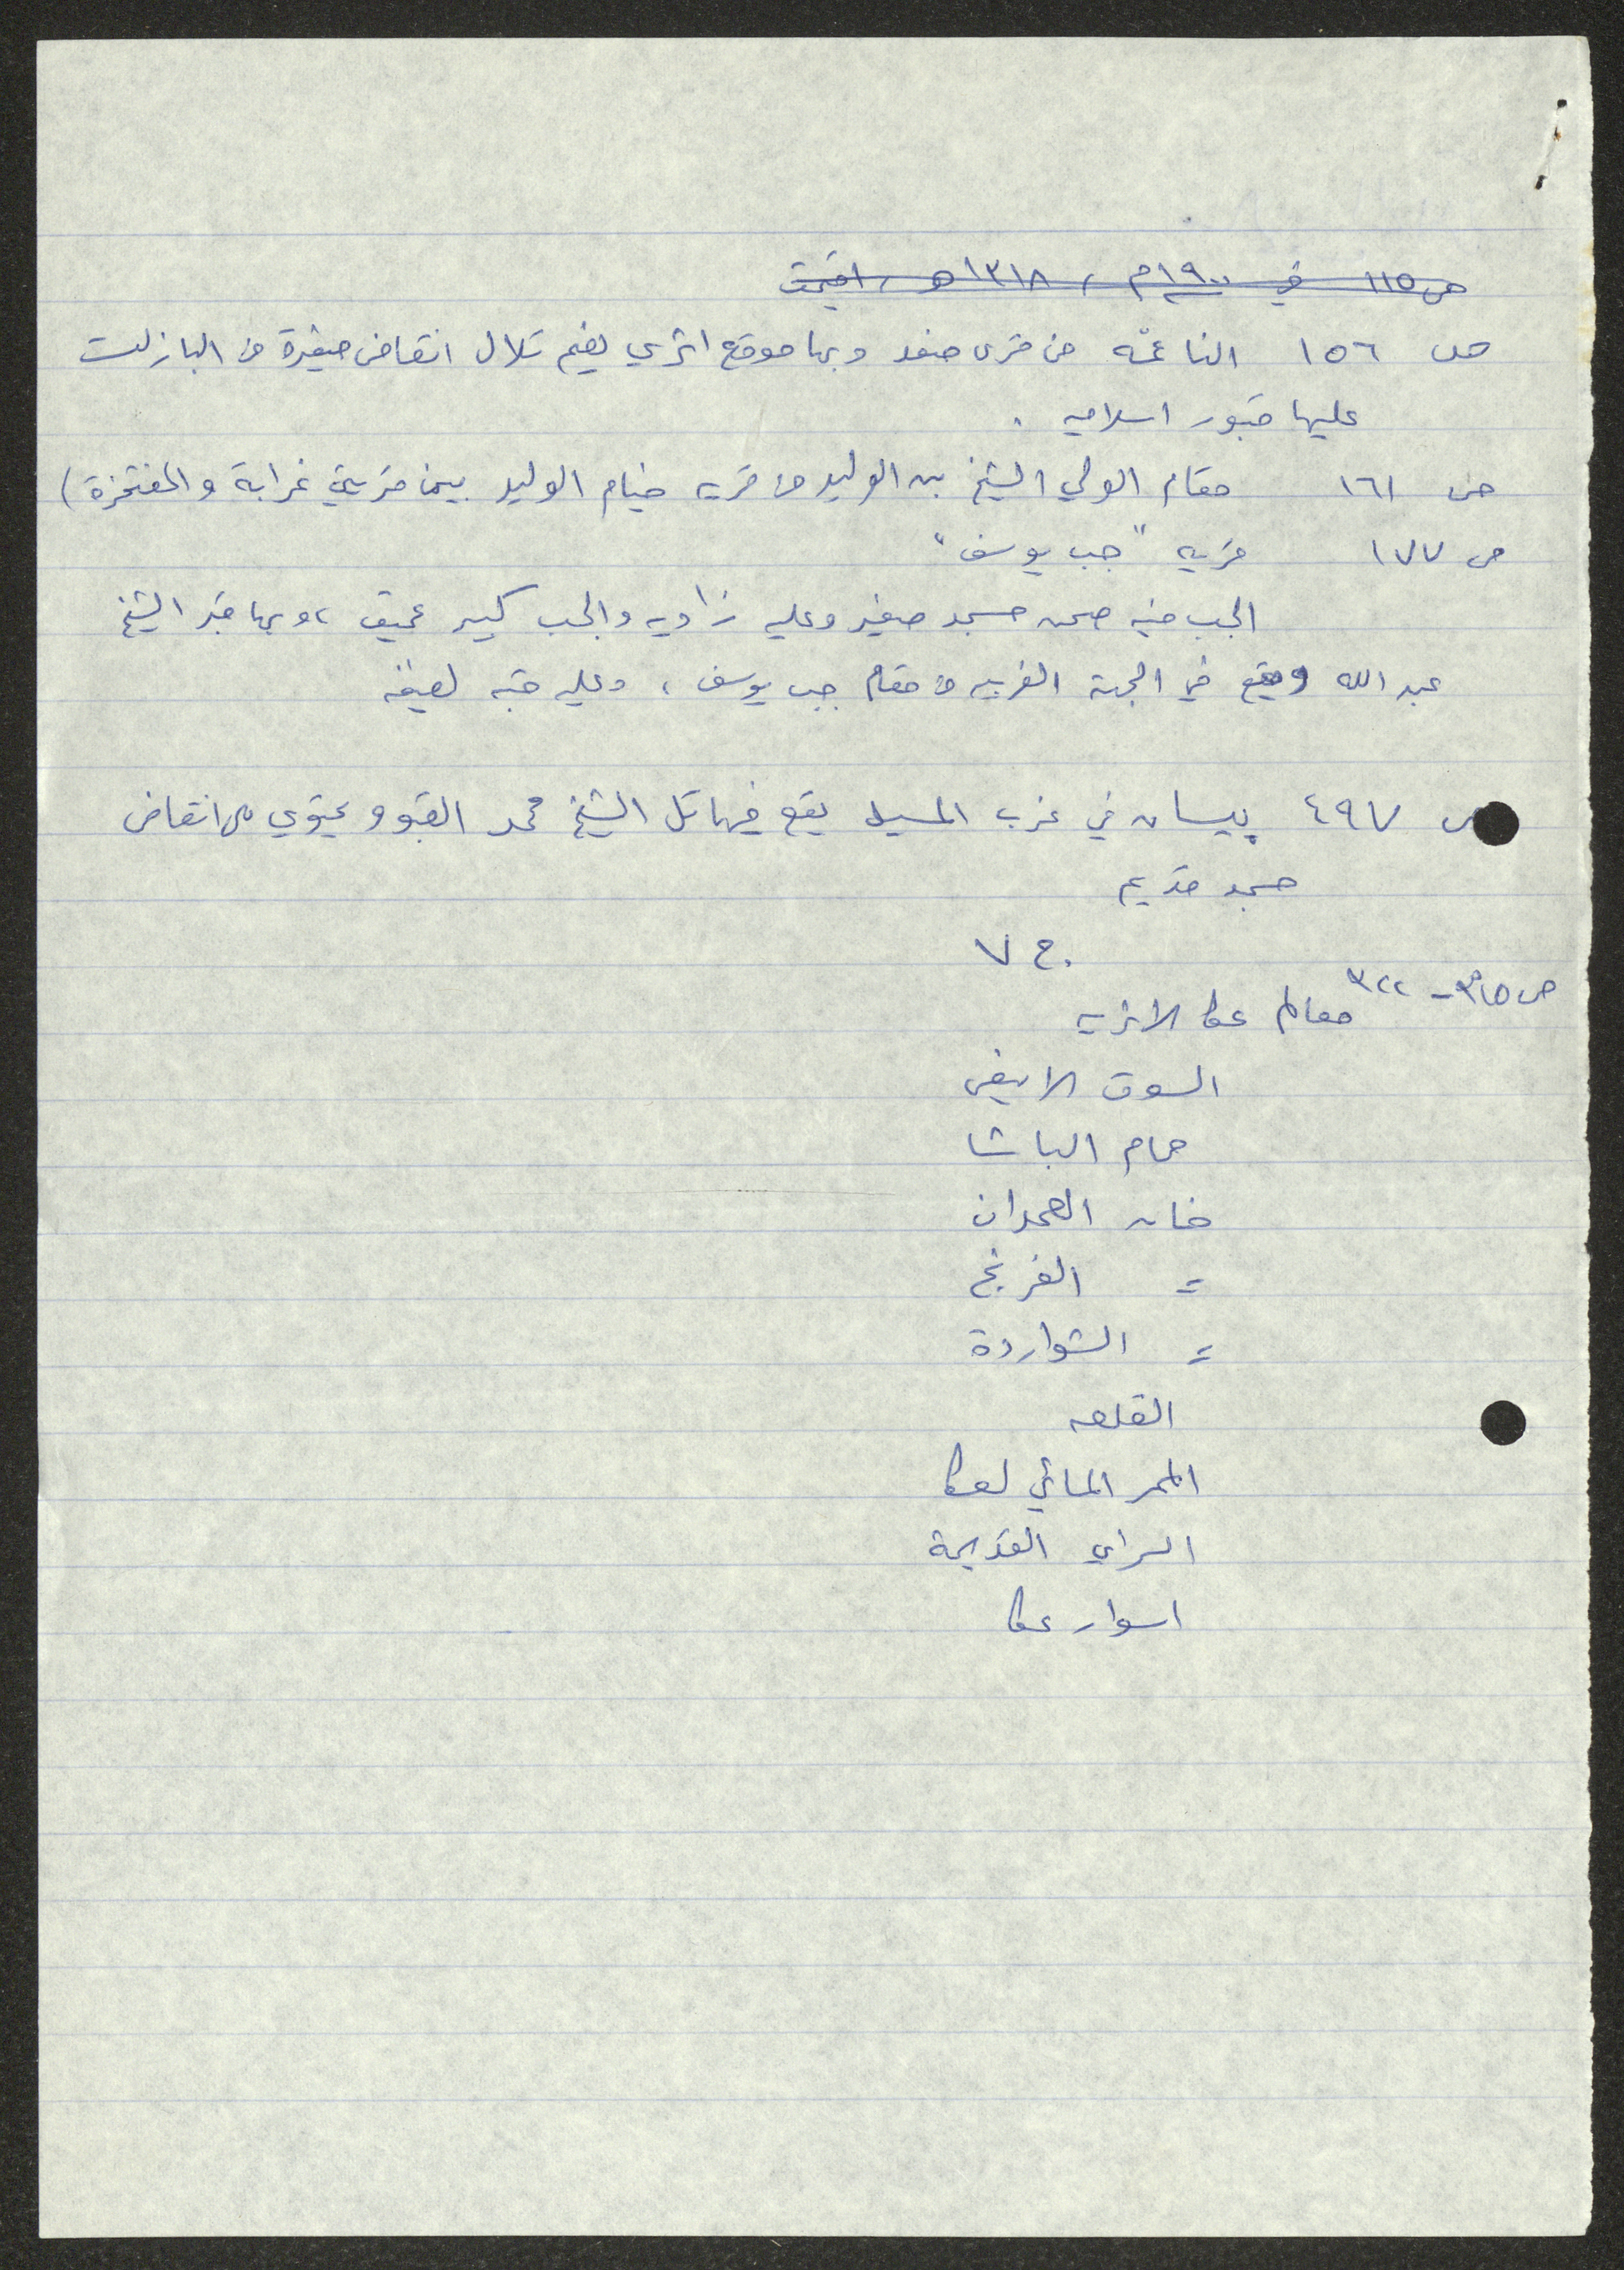 ص ١١٥ في ١٩٠٠م ، ١٣١٨ هـ ، اقيمت
ص ١٥٦ الناعمه من قرى صفد وبها موقع اثري يضم تلال انقاض صغيرة من البازلت
عليها قبور اسلاميه .
ص ١٦١ مقام الولي الشيخ بن الوليد من قريه خيام الوليد بين قريتي غرابة والمفتخرة)
ص ١٧٧ قريه "جب يوسف"
الجب فيه صحن مسجد صغير وعليه زاويه والجب كبير عميق ، وبها قبر الشيخ
عبد الله ويقع في الجهة الغربيه من مقام جب يوسف ، وعليه قبه لطيفه
ص ٤٩٧ بيسان في غرب المسيل يقع فيها تل الشيخ محمد القبو ويحتوي على انقاض
مسجد قديم
ج ٧
ص ٣١٥ - ٣٢٢
معالم عكا الاثريه
السوق الابيض
حمام الباشا
خان العمدان
= الفرنج
= الشواردة
القلعه
الممر المائي لعكا
السراي القديمة
اسوار عكا